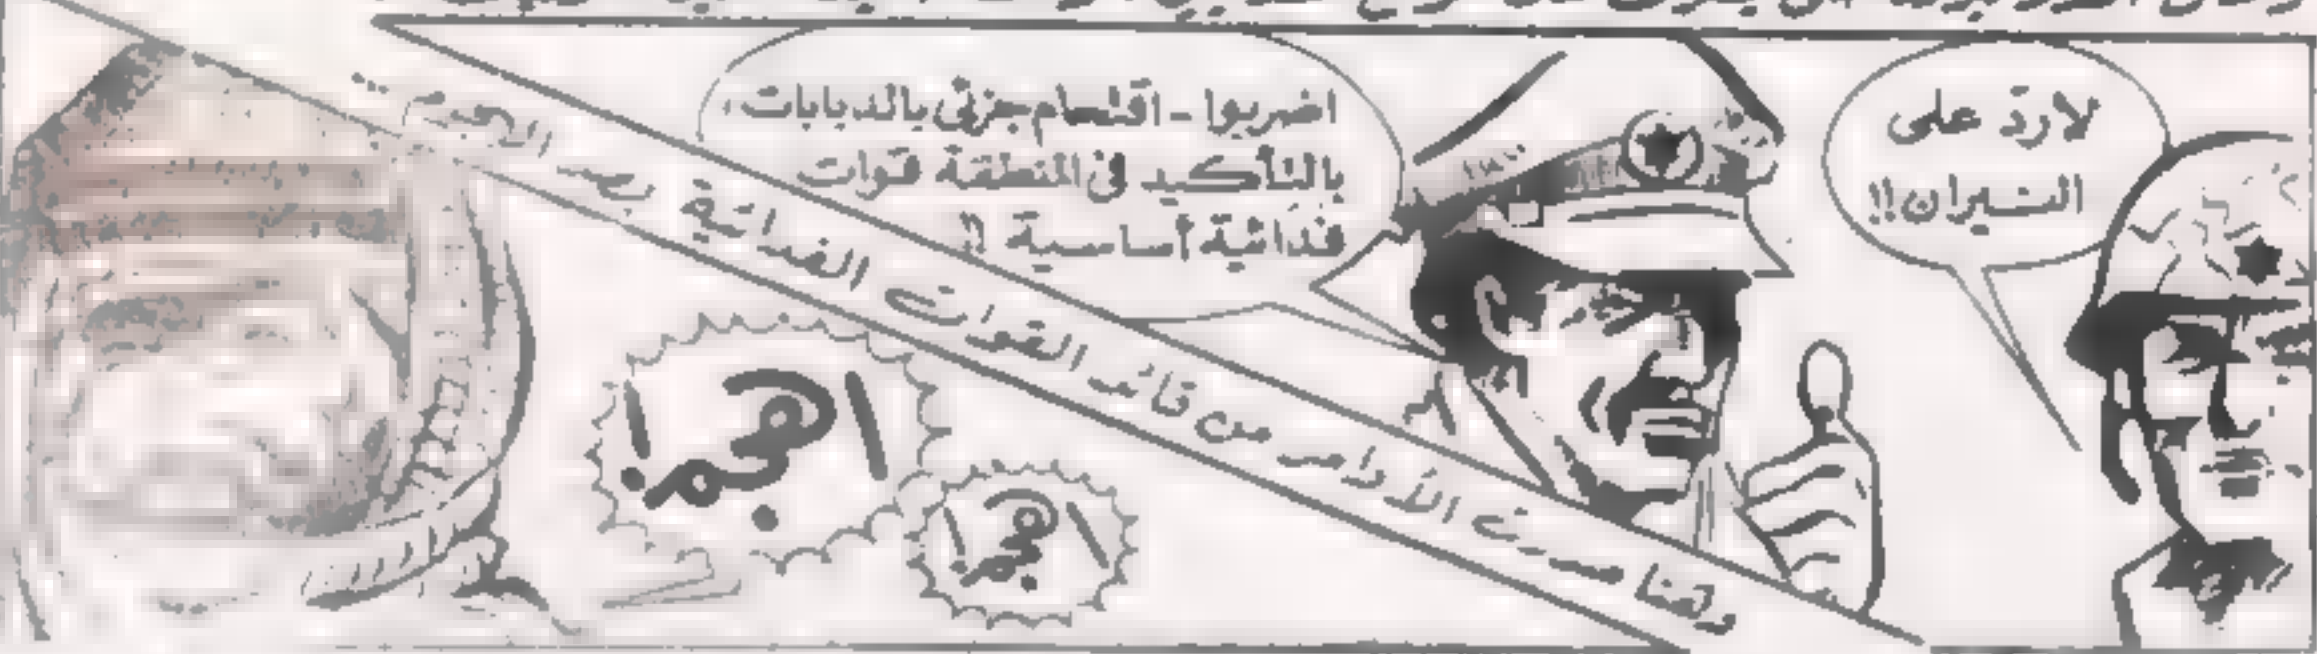 لا ردّ على
النيران!!
اضربوا - اقتحام جزئي بالدبابات،
بالتأكيد في المنطقة قوات
فدائية أساسية !!
وهنا صدرت الأوامر من قائد القوات الفدائية بصد الهجوم ..
اهجم!
اهجم!